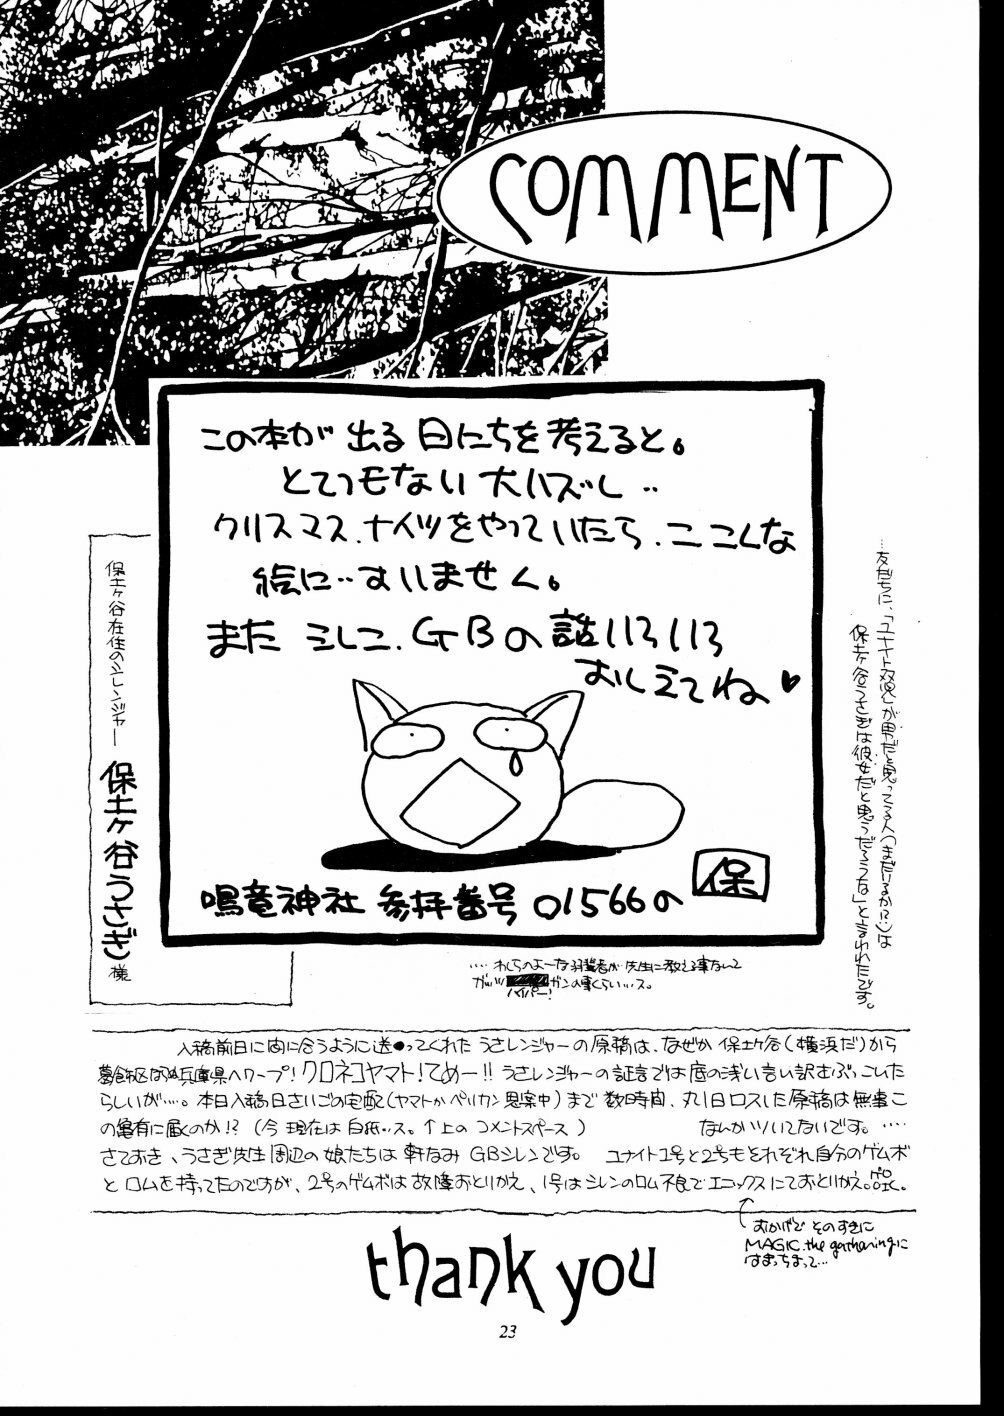 COMMENT
この本が出る日にちを考えると。
とてつもない大ハズし‥
クリスマス.ナイツをやっていたら、ここんな
絵に‥すいません。
また ミレニ.GBの話いろいろ
おしえてね♥
鳴竜神社 参拝番号 01566の 保
保土ヶ谷在住のシレンジャー
保土ヶ谷うさぎ 様
…友だちに、「ユナイト双児」が男だと思ってる人(まだいるか!?:)は
保土ヶ谷うさぎは彼女だと思うだろうな」と言われたです。
先生に教える事なんて
ハイパー!
入稿前日に間に合うように送ってくれた うさレンジャーの原稿は、なぜか 保土ヶ谷(横浜だ)から
兵庫県へワープ! クロネコヤマト!てめー!! うさレンジャーの証言では底の浅い言い訳さぶっこいた
らしいが…。本日入稿日さいごの宅配(ヤマトかペリカン思案中)まで 数時間、丸1日ロスした原稿は無事こ
の亀有に届くのか!? (今 現在は 白紙ッス。↑上の コメントスペース) なんかツイてないです。‥‥
さておき、うさぎ先生周辺の娘たちは 軒なみ GBシレンです。 ユナイト1号と2号もそれぞれ自分のゲムボ
と ロムを持ってたのですが、2号のゲムボは故障おとりかえ、1号はシレンのロム不良でエニックスにておとりかえ。
おかげで そのすきに
MAGIC.the gatheringに
はまっちまって…
thank you
23